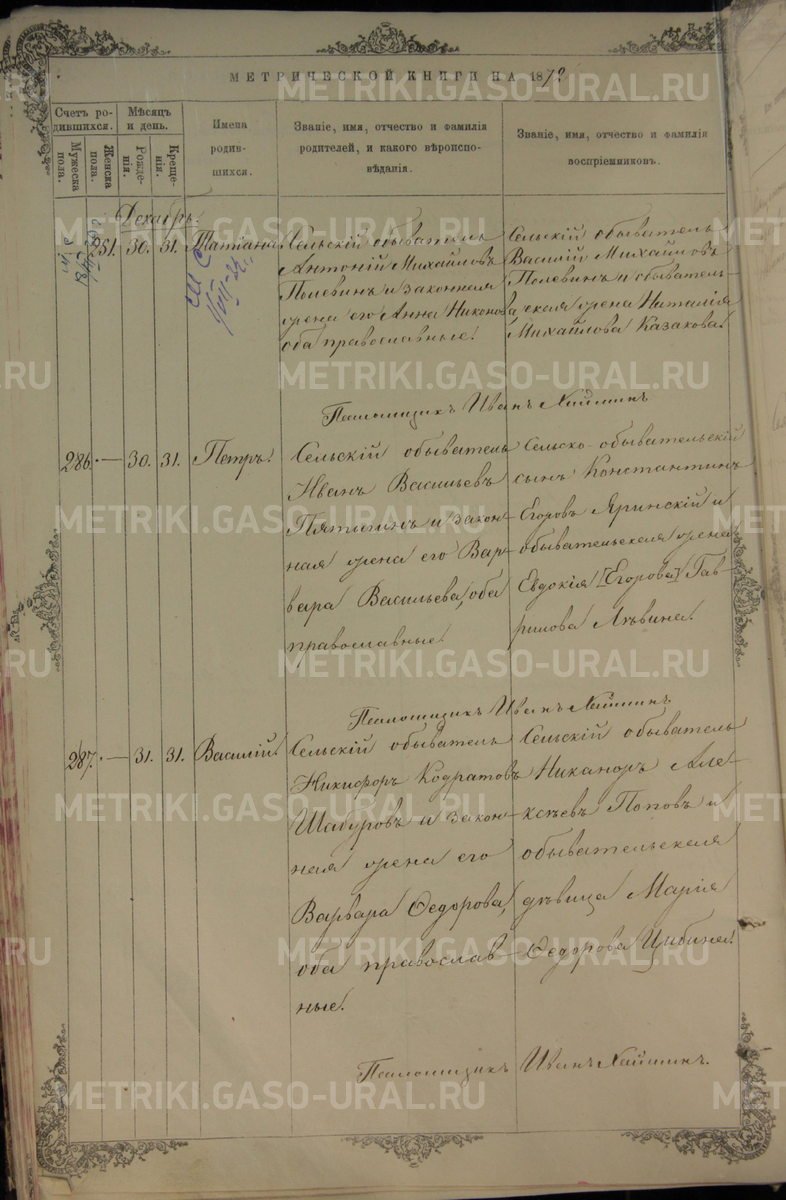 МЕТРИЧЕСКОЙ КНИГИ НА 1872
Счетъ ро-
дившихся.
Мѣсяцъ
и день.
Имена
родив-
шихся.
Званіе, имя, отчество и фамилія
родителей, и какого вѣроиспо-
вѣданія.
Званіе, имя, отчество и фамилія
воспріемниковъ.
Мужеска
пола.
Женска
пола.
Рожде-
нія.
Креще-
нія.
Декабрь.
251. 30. 31. Татіана
Сельскій обыватель
Антоній Михайловъ
Полевинъ и законная
жена его Анна Никонова,
оба православные.
Сельскій обыватель
Василій Михайловъ
Полевинъ и обыватель-
ская жена Наталія
Михайлова Казакова.
Псаломщикъ Иванъ
286. — 30. 31. Петръ.
Сельскій обыватель
Иванъ Васильевъ
и закон-
ная жена его Вар-
вара Васильева, оба
православные.
Сельско-обывательскій
сынъ Константинъ
Егоровъ Яринскій и
обывательская жена
Евдокія [Егорова] Гав-
рилова
Псаломщикъ Иванъ
287. — 31. 31. Василій.
Сельскій обыватель
Никифоръ Кодратовъ
Шабуровъ и закон-
ная жена его
Варвара Ѳедорова,
оба православ-
ные.
Сельскій обыватель
Никаноръ Але-
ксѣевъ Поповъ и
обывательская
дѣвица Марія
Ѳедорова Цыбина.
Псаломщикъ Иванъ
METRIKI.GASO-URAL.RU